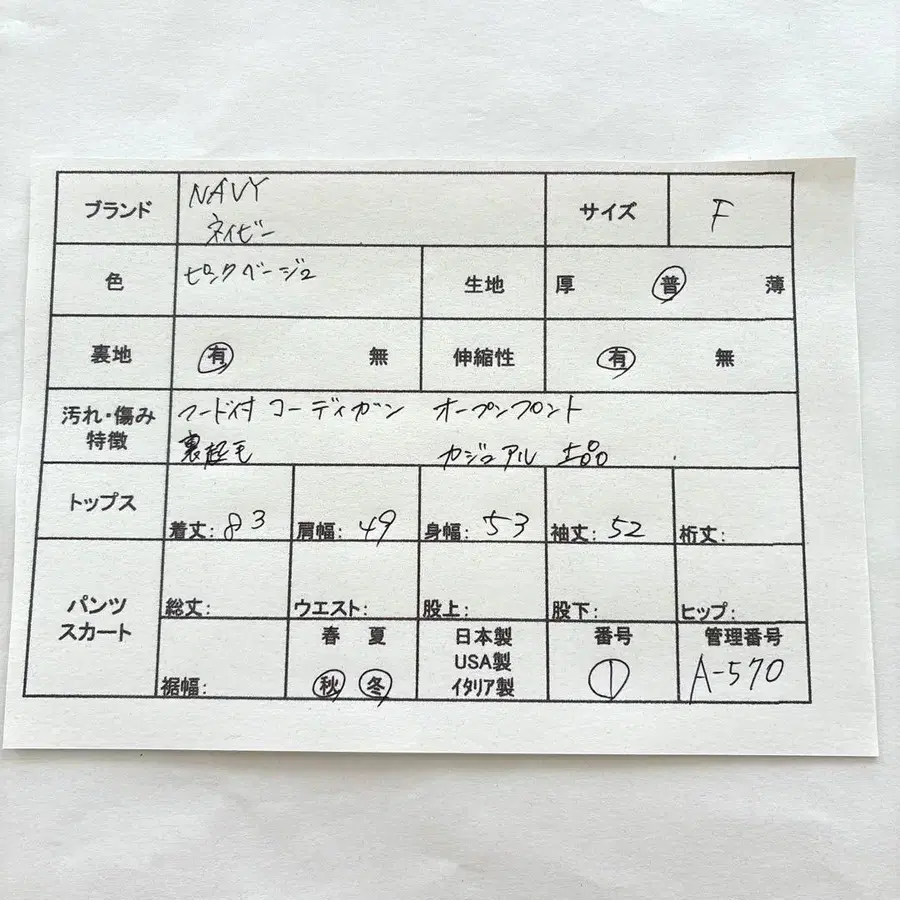 ブランド NAVY サイズ F
ネイビー
色 ピンクベージュ 生地 厚 普 薄
裏地 有 無 伸縮性 有 無
汚れ・傷み フード付 コーディガン オープンフロント
特徴 裏起毛 カジュアル 上品
トップス 着丈: 83 肩幅: 49 身幅: 53 袖丈: 52 裄丈:
パンツ 総丈: ウエスト: 股上: 股下: ヒップ:
スカート 春 夏 日本製 番号 管理番号
USA製
裾幅: 秋 冬 イタリア製 1 A-570